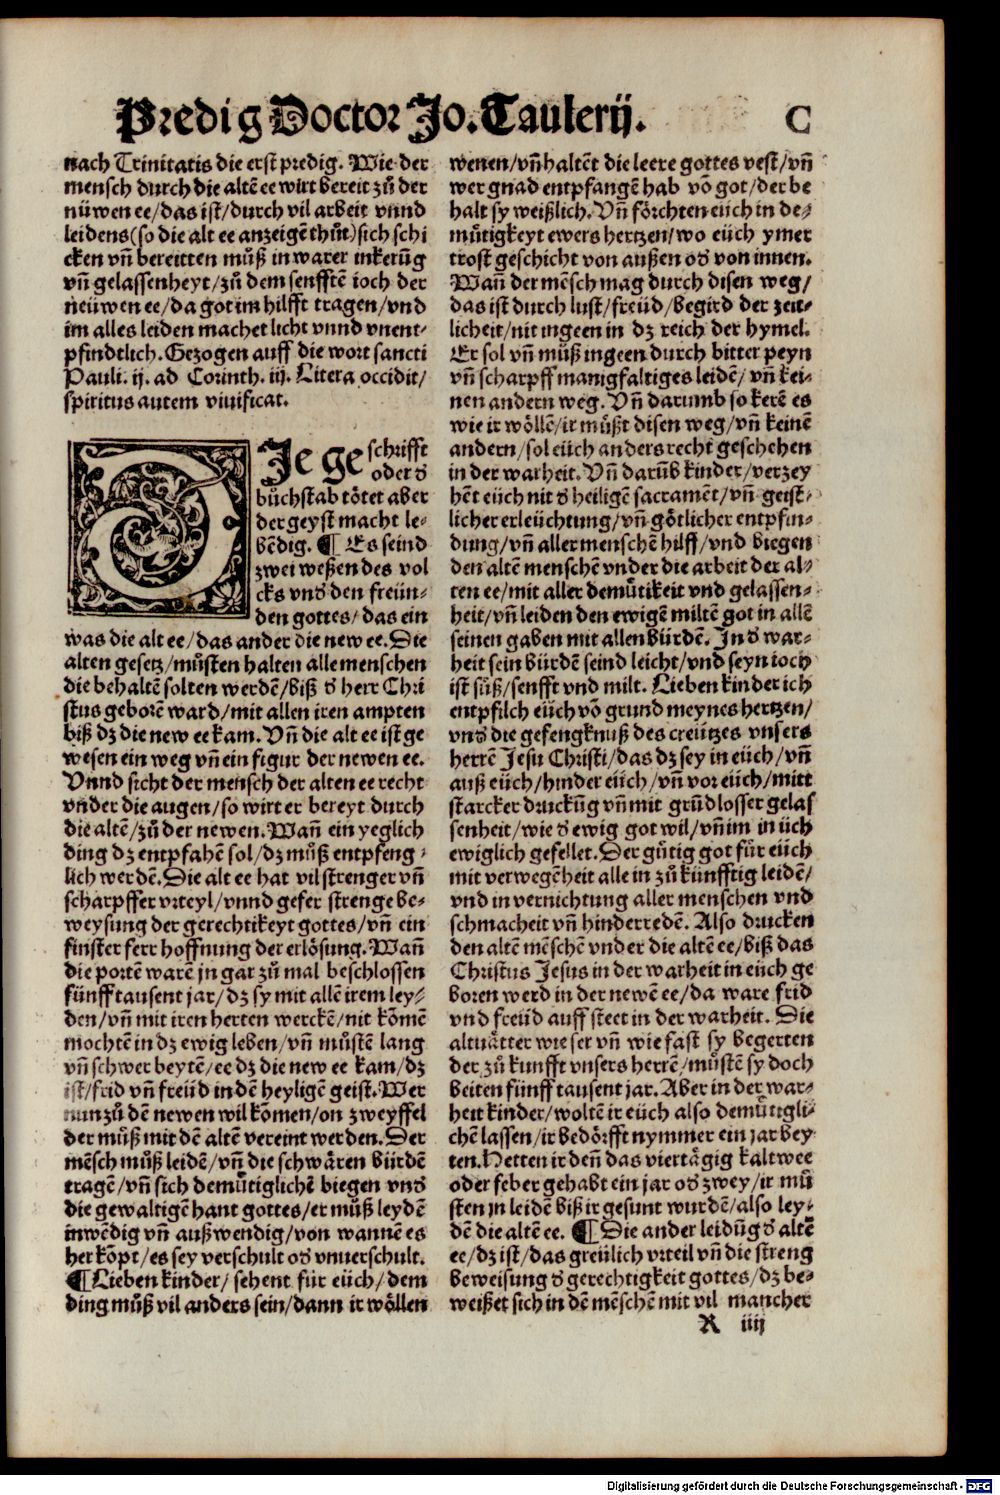 Predig Doctor Jo. Taulerij. C
nach Trinitatis die erst predig. Wie der
mensch durch die altē ee wirt bereit zů der
nüwen ee/das ist/durch vil arbeit vnnd
leidens(so die alt ee anzeigē thůt)sich schi
cken vñ bereitten můß in warer inkerūg
vñ gelassenheyt/zů dem senfftē ioch der
neüwen ee/da got im hilfft tragen/vnd
im alles leiden machet licht vnnd vnent-
pfindtlich. Gezogen auff die wort sancti
Pauli. ij. ad Corinth. iij. Litera occidit/
spiritus autem viuificat.
DJe geschrifft
oder ð
bůchstab tötet aber
der geyst macht le-
bēdig. ¶ Es seind
zwei weßen des vol
cks vnð den freün-
den gottes/das ein
was die alt ee/das ander die new ee. Die
alten gesetz/můsten halten alle menschen
die behaltē solten werdē/biß ð herr Chri
stus geborē ward/mit allen iren ampten
biß dz die new ee kam. Vñ die alt ee ist ge
wesen ein weg vñ ein figur der newen ee.
Vnnd sicht der mensch der alten ee recht
vnder die augen/so wirt er bereyt durch
die altē/zů der newen. Wañ ein yeglich
ding dz entpfahē sol/dz můß entpfeng-
lich werdē. Die alt ee hat vil strenger vñ
scharpffer vrteyl/vnnd gefer strenge be-
weysung der gerechtikeyt gottes/vñ ein
finster ferr hoffnung der erlösung. Wañ
die portē warē jn gar zů mal beschlossen
fünff tausent jar/dz sy mit allē irem ley-
den/vñ mit iren herten werckē/nit kōmē
mochtē in dz ewig leben/vñ můstē lang
vñ schwer beytē/ee dz die new ee kam/dz
ist/frid vñ freüd in dē heyligē geist. Wer
nun zů dē newen wil kōmen/on zweyffel
der můß mit dē altē vereint werden. Der
mēsch můß leidē/vñ die schwären bürdē
tragē/vñ sich demůtiglichē biegen vnð
die gewaltigē hant gottes/er můß leydē
inwēdig vñ außwendig/von wannē es
her kōpt/es sey verschult oð vnuerschult.
¶ Lieben kinder/ sehent für eüch/dem
ding můß vil anders sein/dann ir wöllen
wenen/vñ haltēt die leere gottes vest/vñ
wer gnad entpfangē hab vō got/der be
halt sy weißlich. Vñ förchten eüch in de-
můtigkeyt ewers hertzen/wo eüch ymer
trost geschicht von außen oð von innen.
Wañ der mēsch mag durch disen weg/
das ist durch lust/freüd/begird der zeit-
licheit/nit ingeen in dz reich der hymel.
Er sol vñ můß ingeen durch bitter peyn
vñ scharpff manigfaltiges leidē/ vñ kei-
nen andern weg. Vñ darumb so kerē es
wie ir wöllē/ir můßt disen weg/vñ keinē
andern/sol eüch anders recht geschehen
in der warheit. Vñ darūb kinder/verzey
hēt eüch nit ð heiligē sacramēt/vñ geist-
licher erleüchtung/vñ götlicher entpfin-
dung/vñ aller menschē hilff/vnd biegen
den altē menschē vnder die arbeit der al-
ten ee/mit aller demůtikeit vnd gelassen-
heit/vñ leiden den ewigē miltē got in allē
seinen gaben mit allen bürdē. In ð war-
heit sein bürdē seind leicht/vnd seyn ioch
ist sůß/senfft vnd milt. Lieben kinder ich
entpfilch eüch vō grund meynes hertzen/
vnð die gefengknuß des creützes vnsers
herrē Jesu Christi/das dz sey in eüch/vñ
auß eüch/hinder eüch/vñ vor eüch/mitt
starcker druckūg vñ mit grūdlosser gelas
senheit/wie ð ewig got wil/vñ im in üch
ewiglich gefellet. Der gůtig got für eüch
mit verwegēheit alle in zůkünfftig leidē/
vnd in vernichtung aller menschen vnd
schmacheit vñ hinderredē. Also drucken
den altē mēschē vnder die altē ee/biß das
Christus Jesus in der warheit in eüch ge
boren werd in der newē ee/da ware frid
vnd freüd auff steet in der warheit. Die
altuätter wie ser vñ wie fast sy begerten
der zůkunfft vnsers herrē/můstē sy doch
beiten fünff tausent jar. Aber in der war-
heit kinder/woltē ir eüch also demůtigli-
chē lassen/ir bedörfft nymmer ein jar bey
ten. Hetten ir deñ das viertägig kaltwee
oder feber gehabt ein jar oð zwey/ir mů
sten jn leidē biß ir gesunt wurdē/also ley-
dē die altē ee. ¶ Die ander leidūg ð altē
ee/dz ist/das greülich vrteil vñ die streng
beweisung ð gerechtigkeit gottes/dz be-
weißet sich in dē mēschē mit vil mancher
R iiij
Digitalisierung gefördert durch die Deutsche Forschungsgemeinschaft - DFG